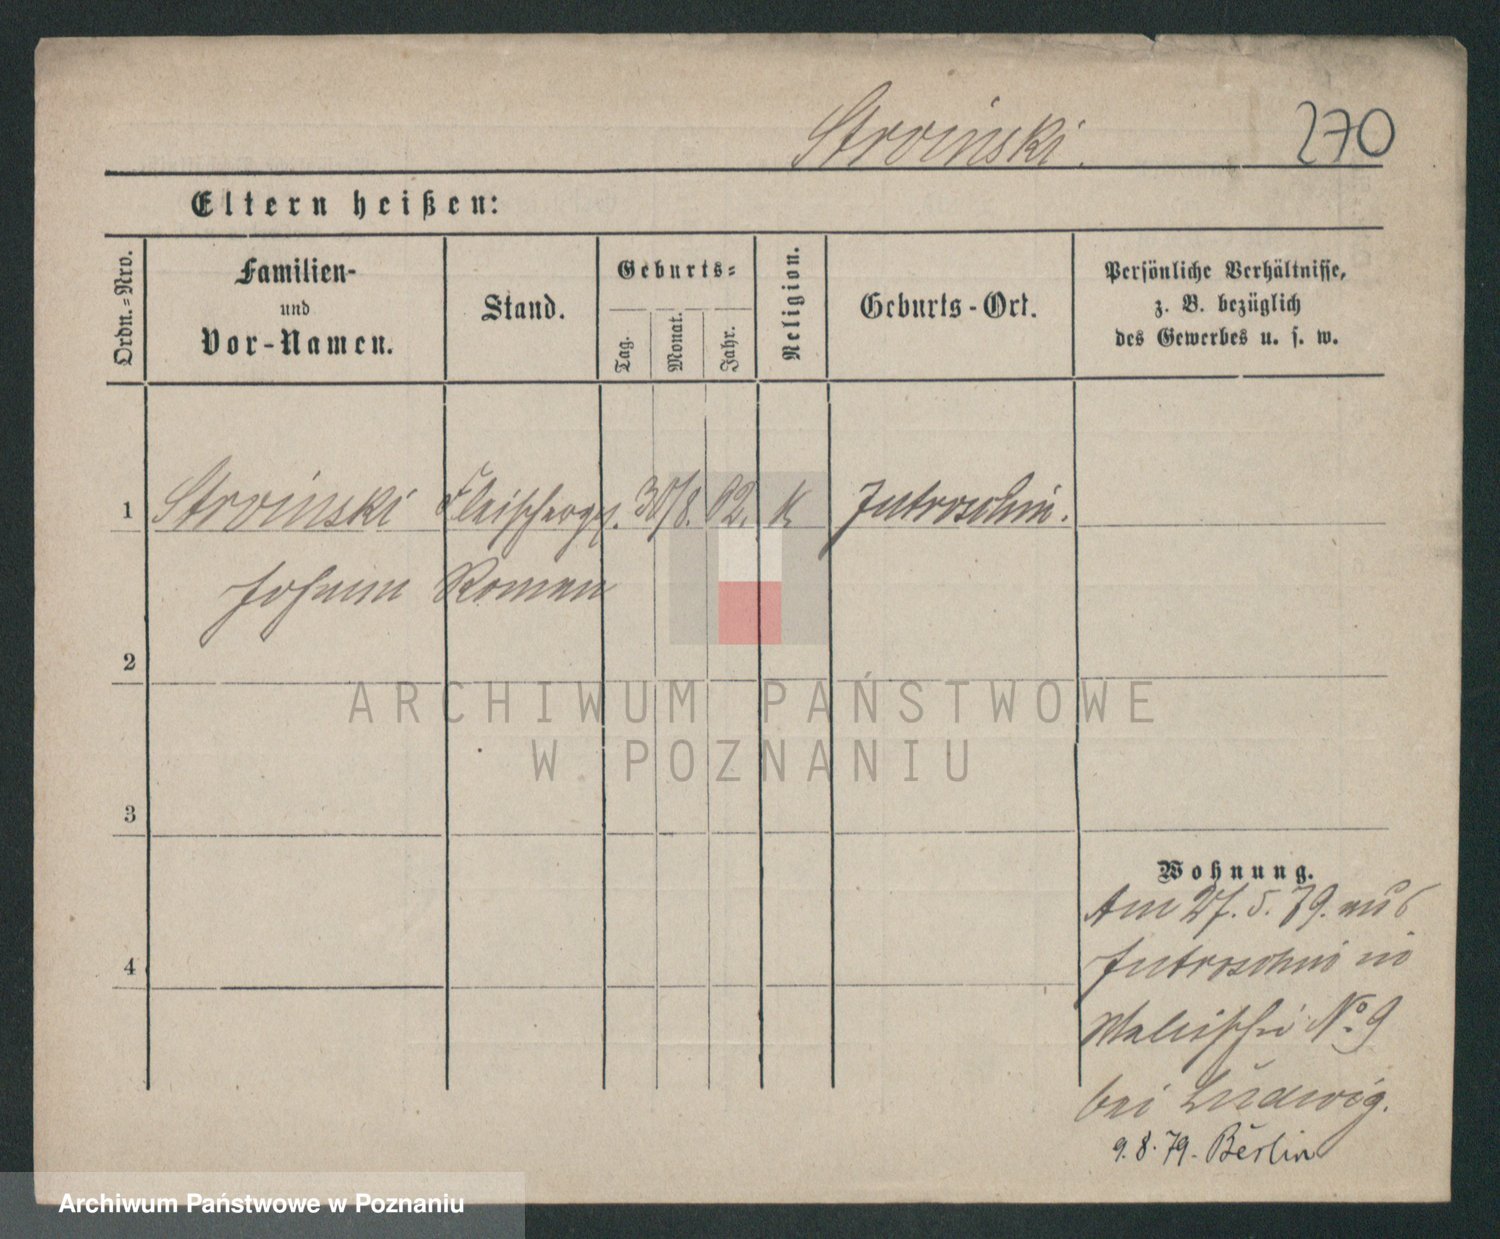 Stroinski.
270
Eltern heißen:
Ordn.=Nro.
Familien-
und
Vor-Namen.
Stand.
Geburts=
Tag.
Monat.
Jahr.
Religion.
Geburts-Ort.
Persönliche Verhältnisse,
z. B. bezüglich
des Gewerbes u. s. w.
1 Stroinski Fleischerges. 30/8. 62. K Jutroschin.
Johann Roman
2
ARCHIWUM PAŃSTWOWE
W POZNANIU
3
Wohnung.
Am 27. 5. 79. aus
4
Jutroschin in
Wallischei No. 9
bei Ludwig.
9. 8. 79. Berlin
Archiwum Państwowe w Poznaniu